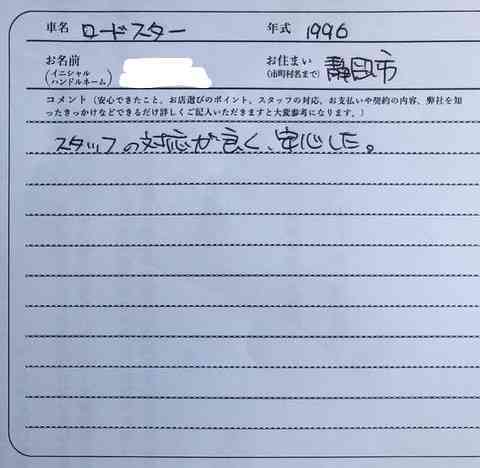 車名 ロードスター 年式 1996
お名前 お住まい 静岡市
(イニシャル (市町村名まで)
ハンドルネーム)
コメント(安心できたこと、お店選びのポイント、スタッフの対応、お支払いや契約の内容、弊社を知
ったきっかけなどできるだけ詳しくご記入いただきますと大変参考になります。)
スタッフの対応が良く、安心した。